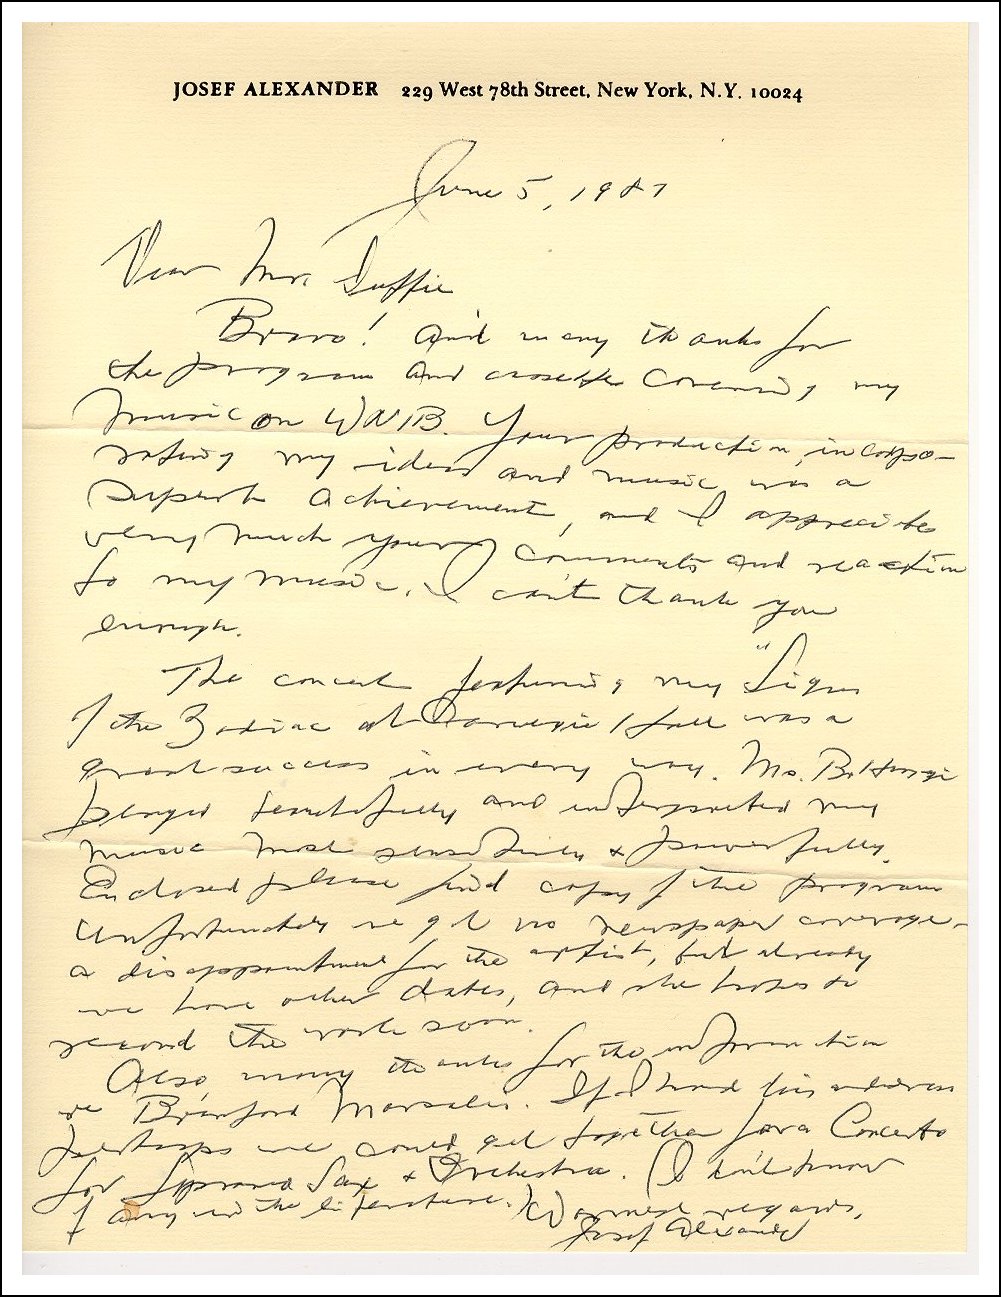 JOSEF ALEXANDER 229 West 78th Street, New York, N.Y. 10024
June 5, 1987
Dear Mr. Duffie
Bravo! And many thanks for
the program and cassette covering my
music on WNIB. Your production, incorpo-
rating my ideas and music was a
superb achievement, and I appreciate
very much your comments and reaction
to my music. I can't thank you
enough.
The concert featuring my "Signs
of the Zodiac at Carnegie Hall was a
great success in every way. Ms.
played beautifully and interpreted my
music most sensitively & powerfully.
Enclosed please find copy of the program
Unfortunately we got no newspaper coverage -
a disappointment for the artist, but already
we have other dates, and she hopes to
record the work soon.
Also, many thanks for the information
re Branford Marsalis. If I had his address
perhaps we could get together for a Concerto
for Soprano Sax & Orchestra. (I don't know
of any in the literature.) Warmest regards,
Josef Alexander